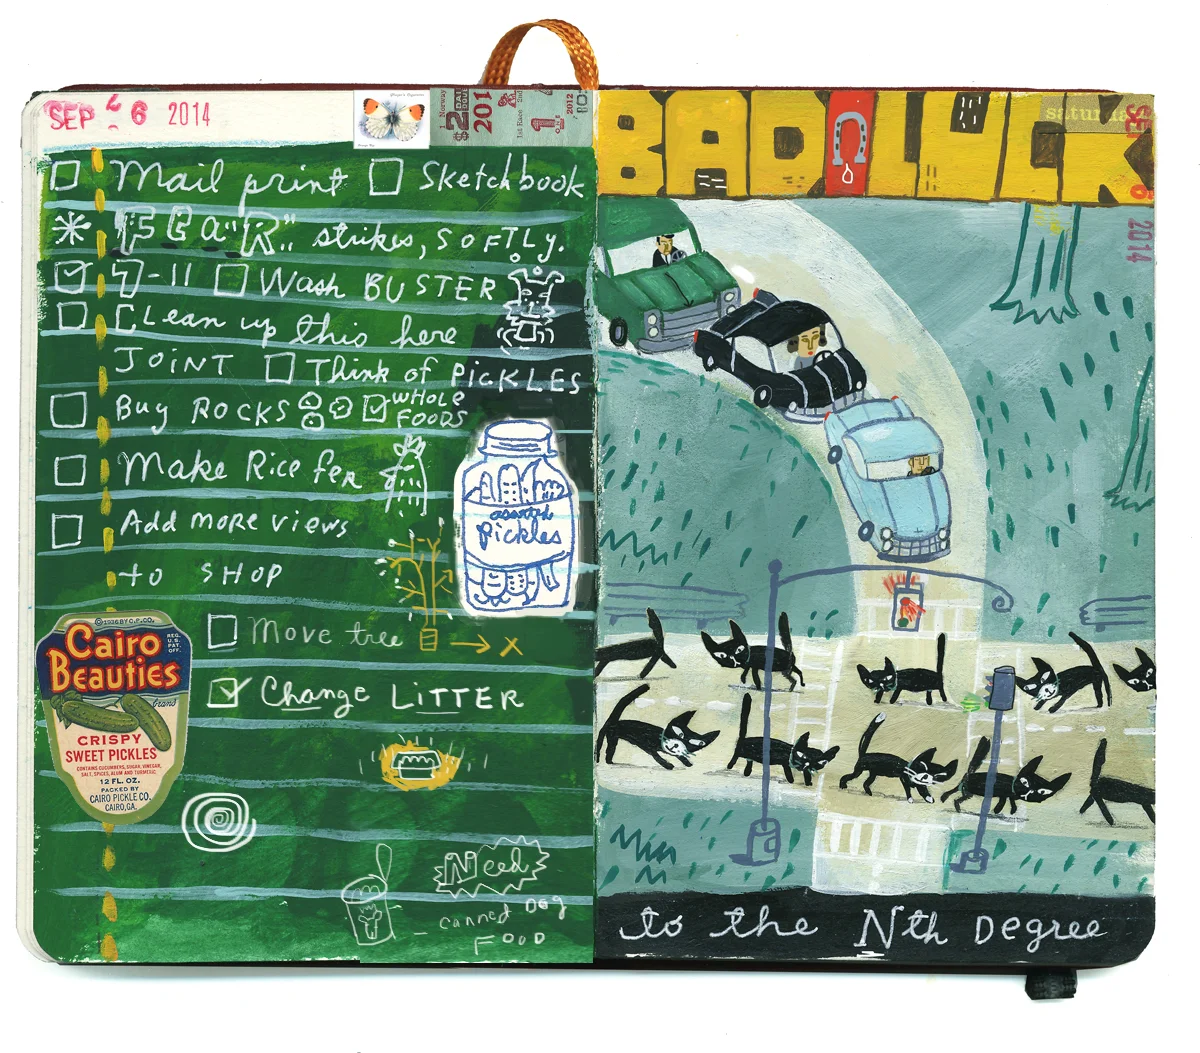 SEP 6 2014
1 Norway
$2 DAILY DOUBLE
201
1st Race 2nd
2012
☐ Mail print ☐ Sketchbook
* FEA"R" strikes, SOFTLY.
☑ 7-11 ☐ Wash BUSTER
☐ CLean up this here
JOINT ☐ Think of PiCKLES
☐ Buy ROCKS ☑ WHOLE FOODS
☐ Make Rice fer
☐ Add more views
to SHOP
assorted
Pickles
☐ Move tree → X
☑ Change LiTTER
©1936 BY C.P.CO.
Cairo
Beauties
REG. U.S. PAT. OFF.
brand
CRISPY
SWEET PICKLES
CONTAINS CUCUMBERS, SUGAR, VINEGAR,
SALT, SPICES, ALUM AND TURMERIC.
12 FL. OZ.
PACKED BY
CAIRO PICKLE CO.
CAIRO, GA.
Need
canned DOg
FOOD
BAD LUCK
saturda
SE 6 2014
to the Nth Degree